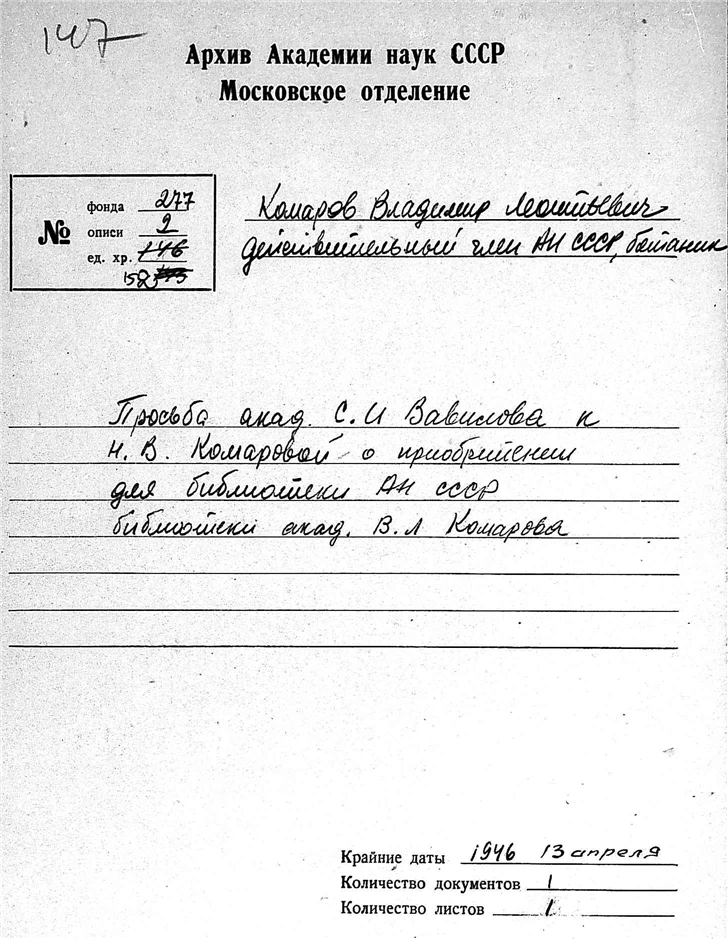 147
Архив Академии наук СССР
Московское отделение
№
фонда 277
описи 2
ед. хр. 146
152
Комаров Владимир Леонтьевич
действительный член АН СССР, ботаник
Просьба акад. С.И Вавилова к
Н. В. Комаровой о приобретении
для библиотеки АН СССР
библиотеки акад. В.Л Комарова
Крайние даты 1946 13 апреля
Количество документов 1
Количество листов 1